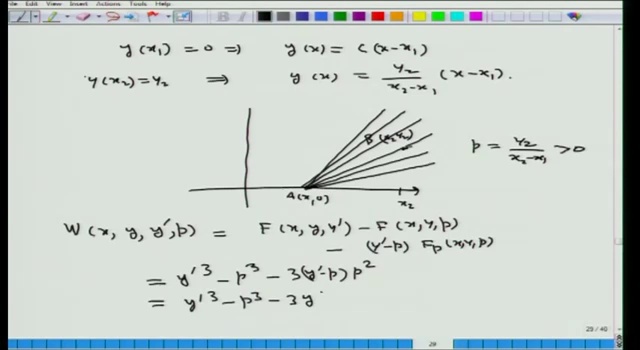 View Insert Actions Tools Help
y(x₁) = 0 ⇒ y(x) = C(x-x₁)
y(x₂) = y₂ ⇒ y(x) = y₂/(x₂-x₁) (x-x₁).
B(x₂,y₂)
p = y₂/(x₂-x₁) > 0
A(x₁,0)
x₂
W(x, y, y', p) = F(x, y, y') - F(x, y, p)
- (y'-p) Fp(x,y,p)
= y'³ - p³ - 3(y'-p)p²
= y'³ - p³ - 3y'
29 / 40
29